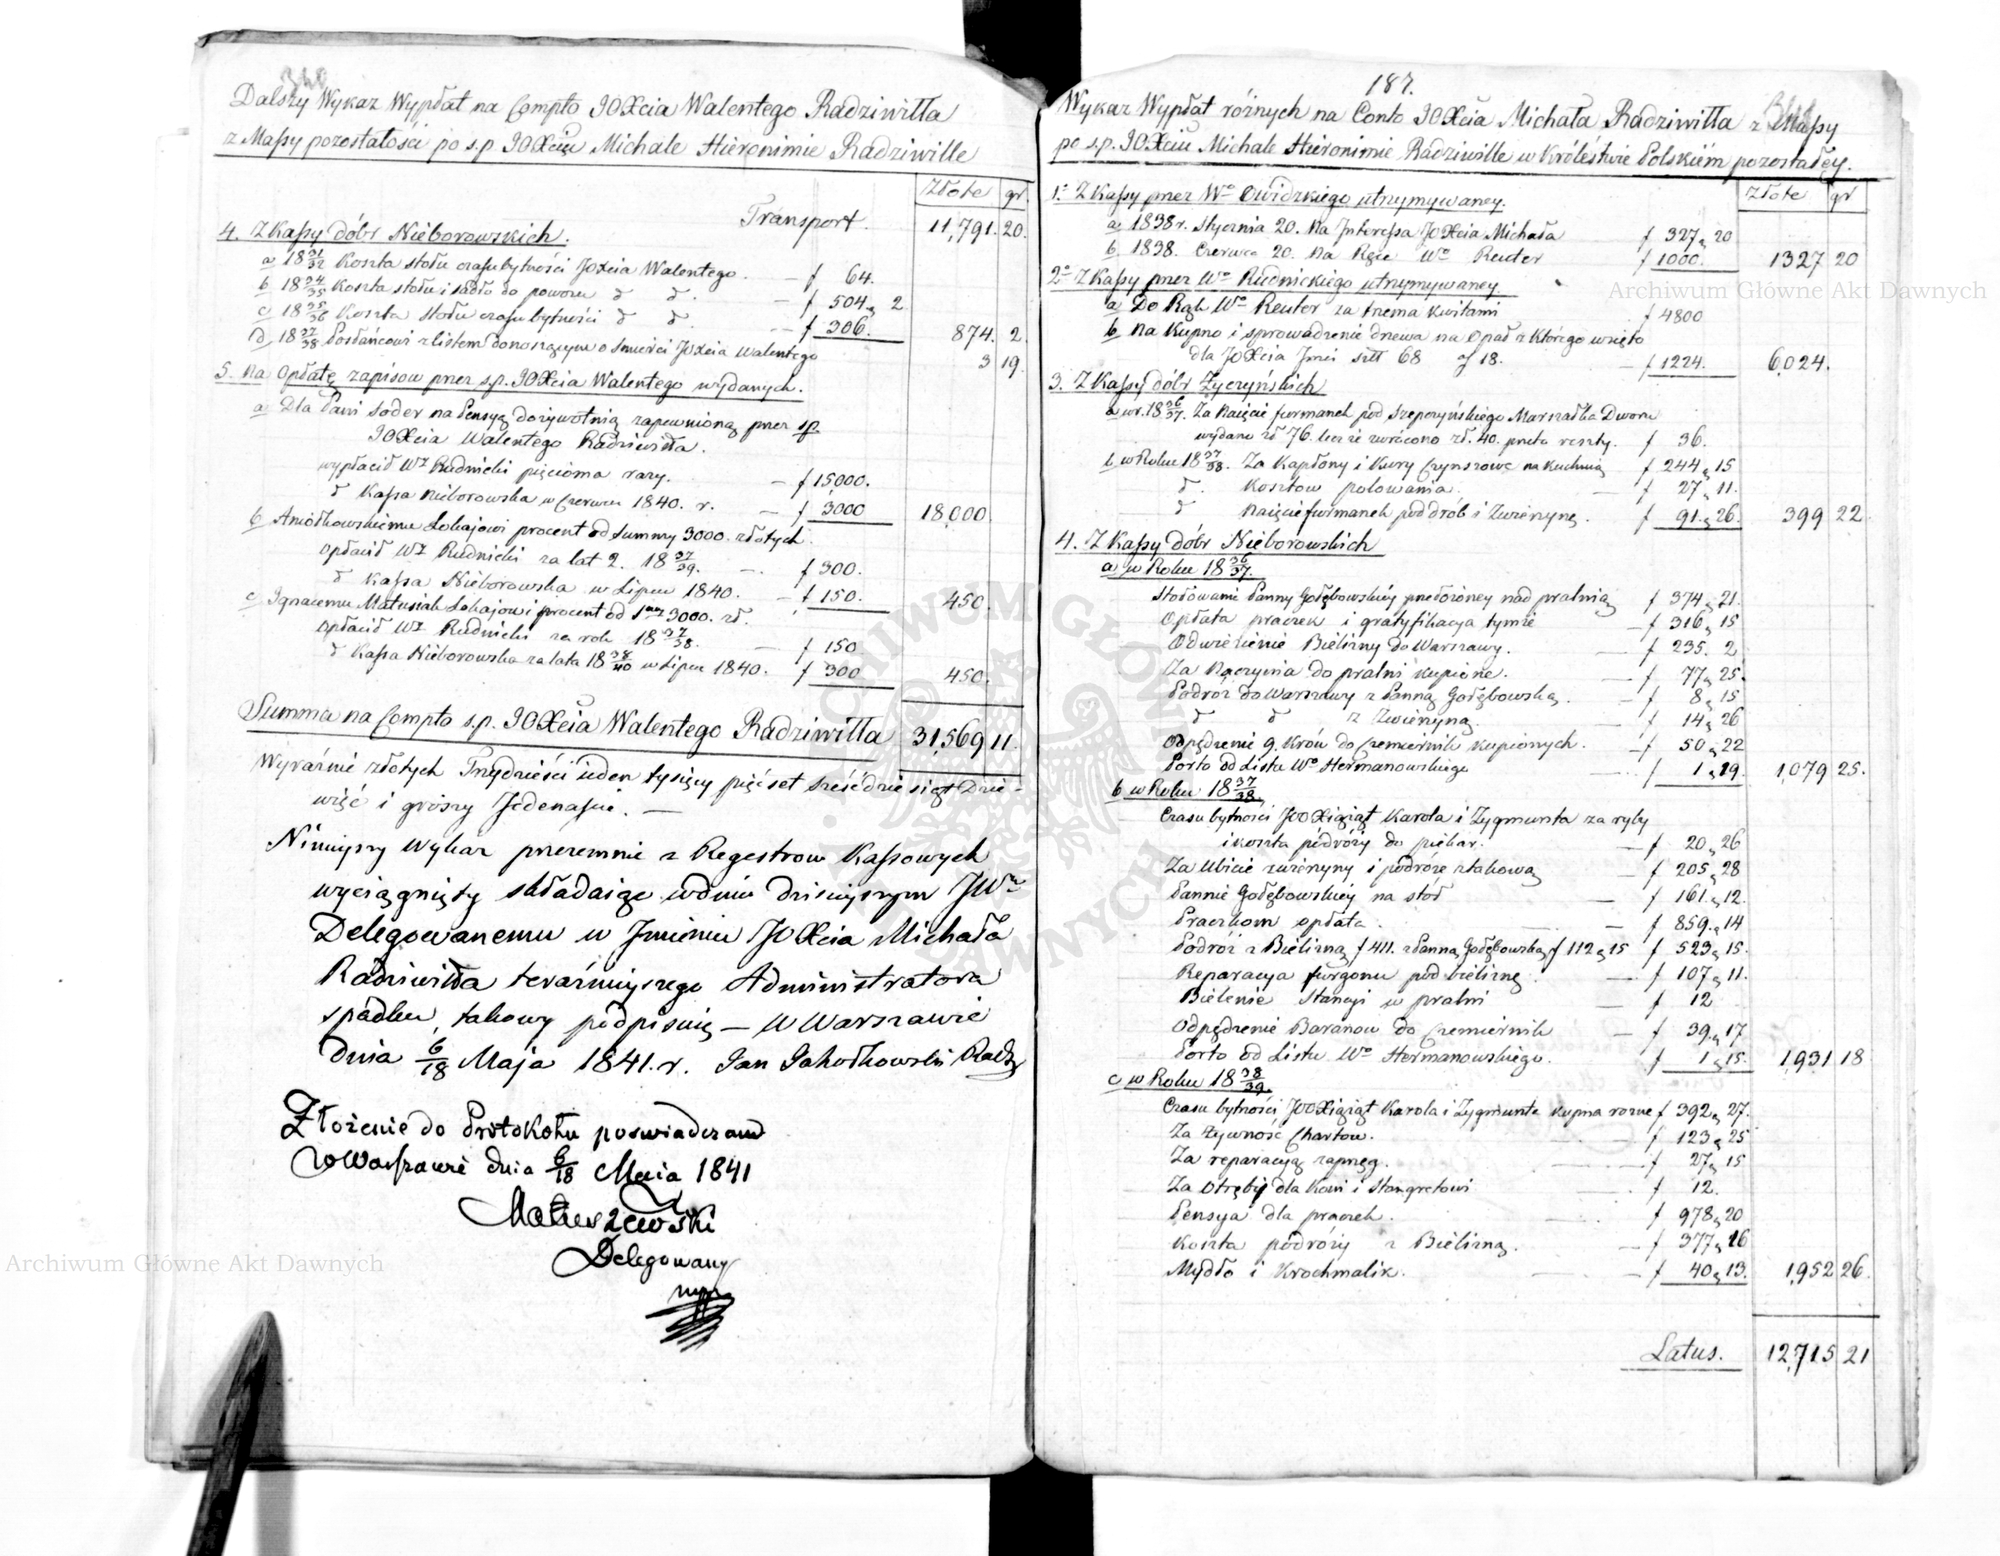 340
Dalszy Wykaz Wypłat na Compto JOXcia Walentego Radziwiłła
z Massy pozostałości po s.p. JOXciu Michale Hieronimie Radziwille
Złote gr.
Transport. 11,791. 20.
4. Z Kassy dóbr Nieborowskich.
a 18 31/32 Koszta stołu czasu bytności JOXcia Walentego. — f 64.
b 18 34/35 Koszta stołu i sadło do powozu d d. — f 504 „ 2
c 18 35/36 Koszta stołu czasu bytności d d. — f 306. 874. 2.
d 18 37/38 Posłańcowi z listem donoszącym o śmierci JOXcia Walentego 3 19.
5. Na Opłatę zapisow przez s.p. JOXcia Walentego wydanych.
a Dla Pani Soder na Pensyą dożywotnią zapewnioną przez sp.
JOXcia Walentego Radziwiłła.
wypłacił Wż Rudnicki pięcioma razy. — f 15,000.
d Kassa Nieborowska w Czerwcu 1840. r. — f 3000 18,000
b Aniołkowskiemu Lokajowi procent od Summy 3000. złotych.
opłacił Wż Rudnicki za lat 2. 18 37/39. — f 300.
d Kassa Nieborowska w Lipcu 1840. — f 150. 450.
c Ignacemu Matusiak Lokajowi procent od 3000. zł.
opłacił Wż Rudnicki za rok 18 37/38. — f 150
d Kassa Nieborowska za lata 18 38/40 w Lipcu 1840. f 300 450.
Summa na Compto s.p. JOXcia Walentego Radziwiłła 31,569 11.
Wyraźnie złotych Trzydzieści ieden tysięcy pięćset sześćdziesiąt Dzie-
więć i groszy Jedenaście. —
Ninieyszy Wykaz przezemnie z Regestrow Kassowych
wyciągnięty składaiąc w dniu dzisieyszym JWu
Delegowanemu w Jmieniu JOXcia Michała
Radziwiłła teraźnieyszego Administratora
spadku, takowy podpisuię — W Warszawie
dnia 6/18 Maja 1841. r. Jan Sakołkowski Radz
Złożenie do Protokołu poswiadczam
w Warszawie dnia 6/18 Maia 1841
Matuszewski
Delegowany
mpr
187.
Wykaz Wypłat różnych na Conto JOXcia Michała Radziwiłła z Massy
po s.p. JOXciu Michale Hieronimie Radziwille w Królestwie Polskiem pozostałéy.
Złote gr
1º Z Kassy przez Wº Owidzkiego utrzymywaney.
a 1838 r. Stycznia 20. Na Interessa JOXcia Michała f 327 „ 20
b 1838. Czerwca 20. Na Ręce Wº Reuter f 1000. 1327 20
2º Z Kassy przez Wº Rudnickiego utrzymywaney.
a Do Rąk Wº Reuter za trzema kwitami f 4800
b Na Kupno i sprowadzenie drzewa na Opał z Którego wzięto
dla JOXcia Jmci sztt 68 af 18. — f 1224. 6,024.
3. Z Kassy dóbr Życzyńskich
a w r. 18 36/37. Za Naięcie furmanek pod Szepczyńskiego Marszałka Dworu
wydano zł 76. lecz że zwrócono zł. 40. przeto reszty. f 36.
b w Roku 18 37/38. Za Kapłony i Kury Czynszowe na Kuchnią f 244 „ 15
d. Kosztow polowania. — f 27 „ 11.
d Naięcie furmanek pod drob i Zwierzynę. f 91 „ 26. 399 22.
4. Z Kassy dóbr Nieborowskich
a w Roku 18 36/37.
Stołowanie Panny Gołębowskiéy przełożoney nad pralnią f 374 „ 21.
Opłata praczek i gratyfikacya tymże — f 316 „ 15
Odwiezienie Bielizny do Warszawy. — f 235. 2
Za Naczynia do pralni kupione. — f 77 „ 25.
Podróż do Warszawy z Panną Gołębowską. — f 8 „ 15
d d z Zwierzyną. — f 14 „ 26
Odpędzenie 9. Krów do Czemiernik kupionych. — f 50 „ 22
Porto od Listu Wº Hermanowskiego — f 1 „ 19. 1,079 25.
b w Roku 18 37/38.
Czasu bytności JOOXiążąt Karola i Zygmunta za ryby
i koszta podróży do piekar. — f 20 „ 26
Za Ubicie zwierzyny i podróże z takową f 205 „ 28
Pannie Gołębowskiéy na stoł — f 161 „ 12.
Praczkom opłata. — f 859 „ 14
Podróż z Bielizną f 411. z Panną Gołębowską f 112 „ 15 f 523 „ 15.
Reparacya furgonu pod bieliznę. — f 107 „ 11.
Bielenie Stancyi w pralni — f 12
Odpędzenie Baranow do Czemiernik — f 39 „ 17
Porto od Listu Wº Hermanowskiego. — f 1 „ 15. 1,931 18
c w Roku 18 38/39.
Czasu bytności JOOXiążąt Karola i Zygmunta kupna rozne f 392 „ 27.
Za żywność Chartow. — f 123 „ 25
Za reparacyą zaprzęg. — f 27 „ 15
Za Otręby dla Koni i Stangretowi f 12.
Pensya dla praczek. — f 978 „ 20
Koszta podróży z Bielizną. — f 377 „ 16
Mydło i Krochmalik. — f 40 „ 13. 1,952 26.
Latus. 12,715 21
Archiwum Główne Akt Dawnych
Archiwum Główne Akt Dawnych
ARCHIWUM GŁÓWNE AKT DAWNYCH